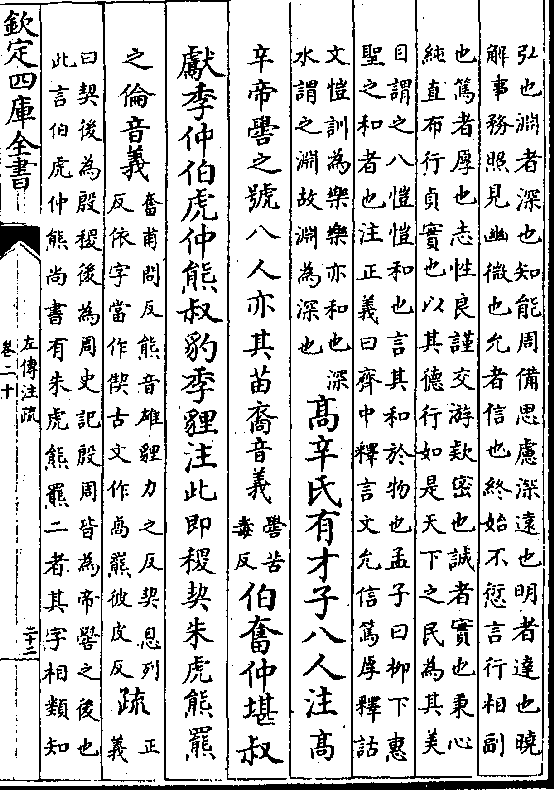 弘也淵者深也知能周備思慮深遠也明者達也曉
解事務照見幽微也允者信也終始不愆言行相副
也篤者厚也志性良謹交游款密也誠者實也秉心
純直布行貞實也以其德行如是天下之民為其美
目謂之八愷愷和也言其和於物也孟子曰柳下惠
聖之和者也注正義曰齊中釋言文允信篤厚釋詁
文愷訓為樂樂亦和也深
水謂之淵故淵為深也
高辛氏有才子八人注高
辛帝嚳之號八人亦其苗裔音義
嚳苦
毒反
伯奮仲堪叔
獻季仲伯虎仲熊叔豹季貍注此即稷契朱虎熊羆
之倫音義
奮甫問反熊音雄貍力之反契息列
反依字當作偰古文作卨羆彼皮反
疏
正
義
曰契後為殷稷後為周史記殷周皆為帝嚳之後也
此言伯虎仲熊尚書有朱虎熊羆二者其字相類知
欽定四庫全書
左傳注疏
卷二十
二十二